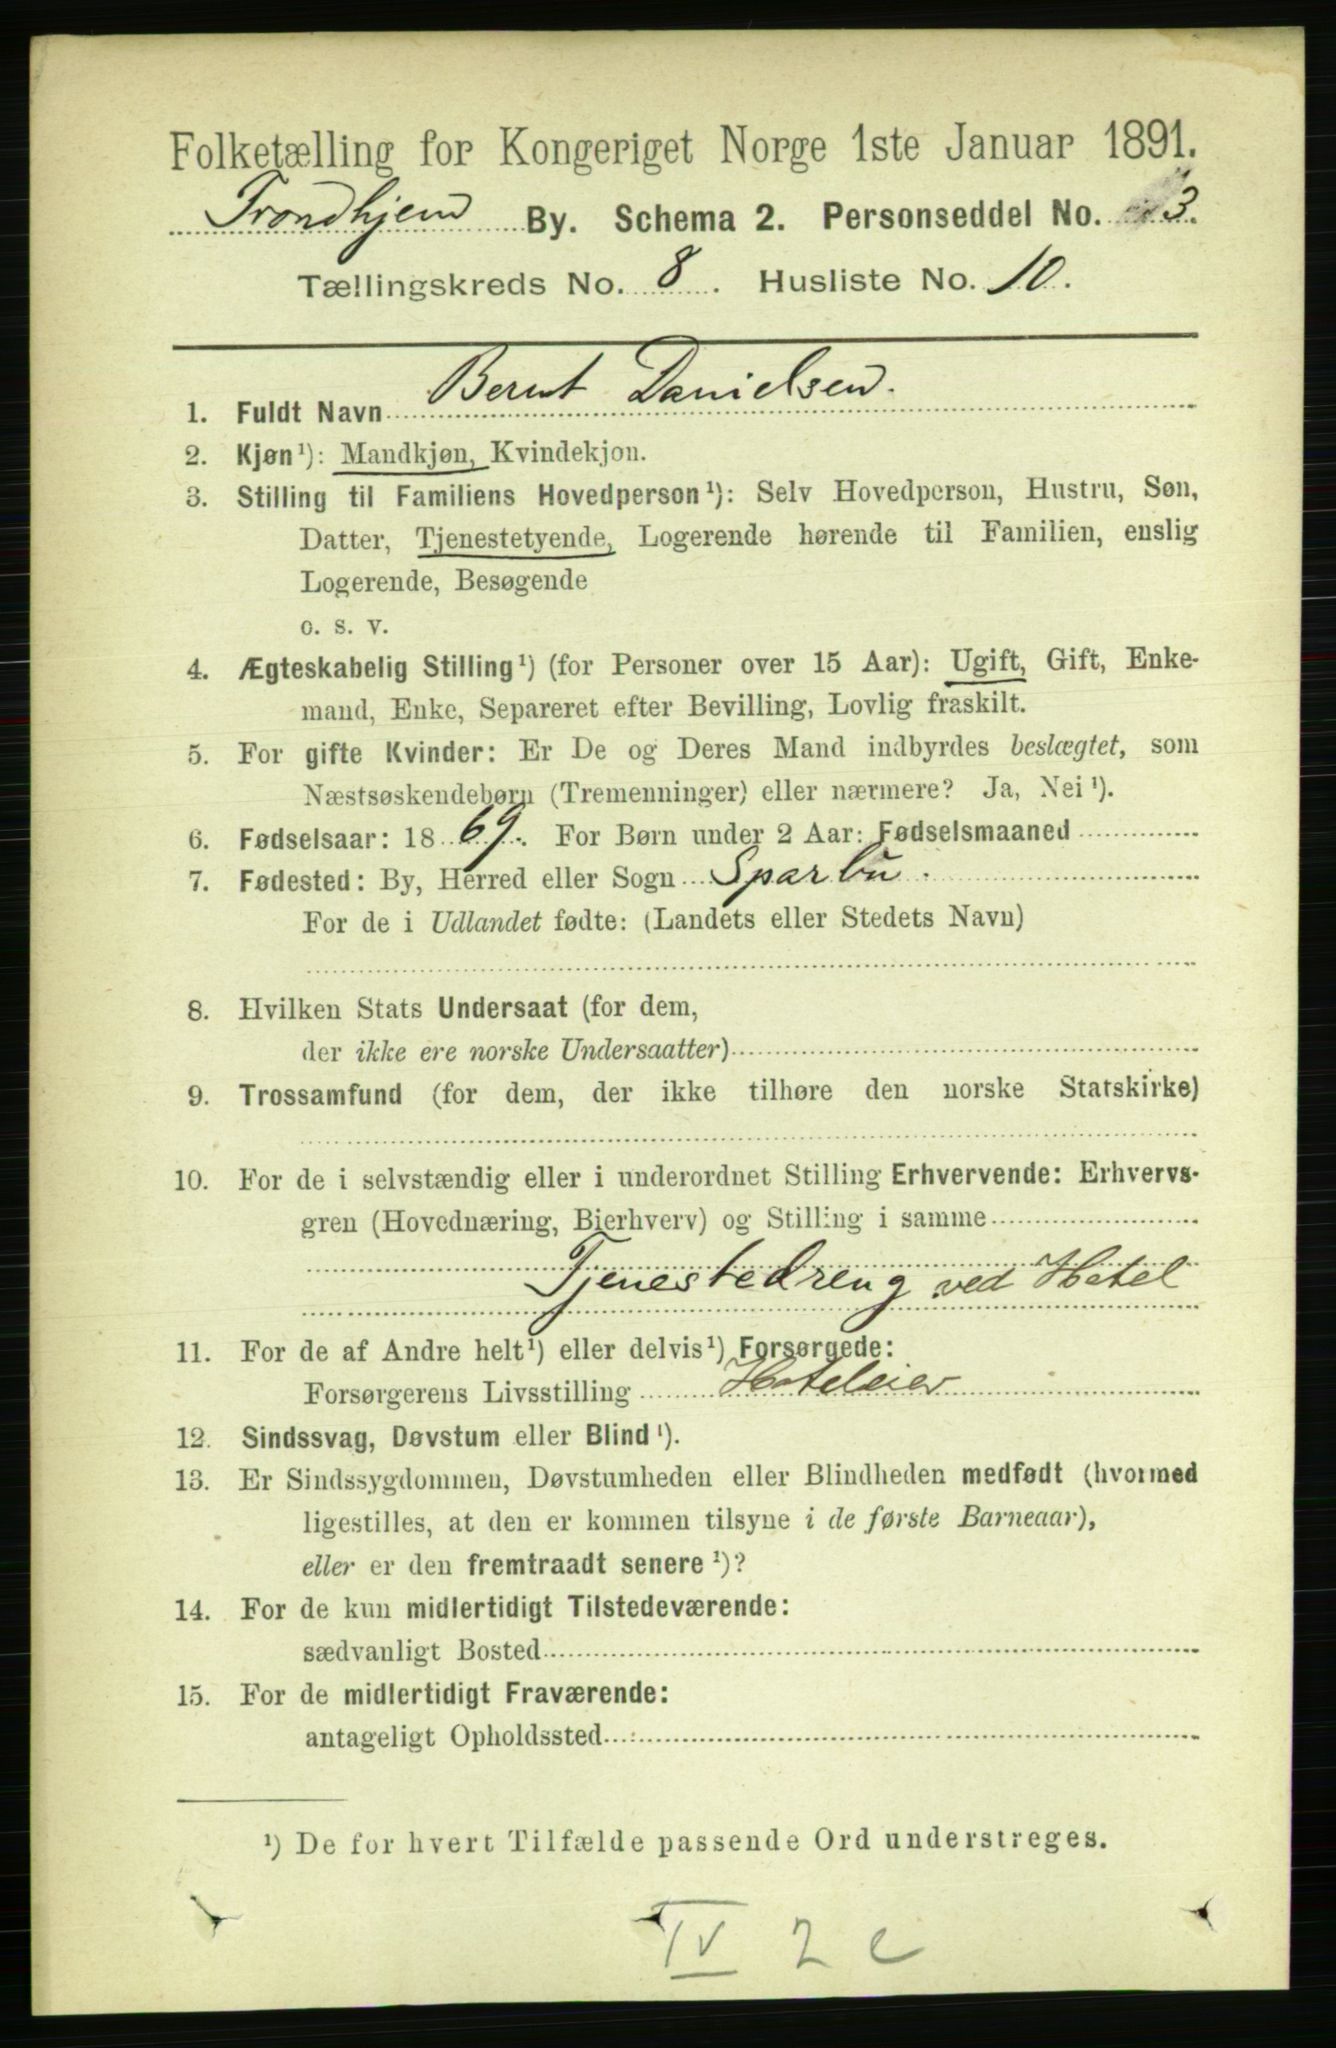 Folketælling for Kongeriget Norge 1ste Januar 1891.
Trondhjem By. Schema 2. Personseddel No. 3.
Tællingskreds No. 8. Husliste No. 10.
1. Fuldt Navn Bernt Danielsen.
2. Kjøn¹): Mandkjøn, Kvindekjøn.
3. Stilling til Familiens Hovedperson¹): Selv Hovedperson, Hustru, Søn,
Datter, Tjenestetyende, Logerende hørende til Familien, enslig
Logerende, Besøgende
o. s. v.
4. Ægteskabelig Stilling¹) (for Personer over 15 Aar): Ugift, Gift, Enke-
mand, Enke, Separeret efter Bevilling, Lovlig fraskilt.
5. For gifte Kvinder: Er De og Deres Mand indbyrdes beslægtet, som
Næstsøskendebørn (Tremenninger) eller nærmere? Ja, Nei¹).
6. Fødselsaar: 1869. For Børn under 2 Aar: Fødselsmaaned
7. Fødested: By, Herred eller Sogn Sparbu.
For de i Udlandet fødte: (Landets eller Stedets Navn)
8. Hvilken Stats Undersaat (for dem,
der ikke ere norske Undersaatter)
9. Trossamfund (for dem, der ikke tilhøre den norske Statskirke)
10. For de i selvstændig eller i underordnet Stilling Erhvervende: Erhvervs-
gren (Hovednæring, Bierhverv) og Stilling i samme
Tjenestedreng ved Hotel
11. For de af Andre helt¹) eller delvis¹) Forsørgede:
Forsørgerens Livsstilling Hoteleier
12. Sindssvag, Døvstum eller Blind¹).
13. Er Sindssygdommen, Døvstumheden eller Blindheden medfødt (hvormed
ligestilles, at den er kommen tilsyne i de første Barneaar),
eller er den fremtraadt senere¹)?
14. For de kun midlertidigt Tilstedeværende:
sædvanligt Bosted
15. For de midlertidigt Fraværende:
antageligt Opholdssted
¹) De for hvert Tilfælde passende Ord understreges.
IV 2 c